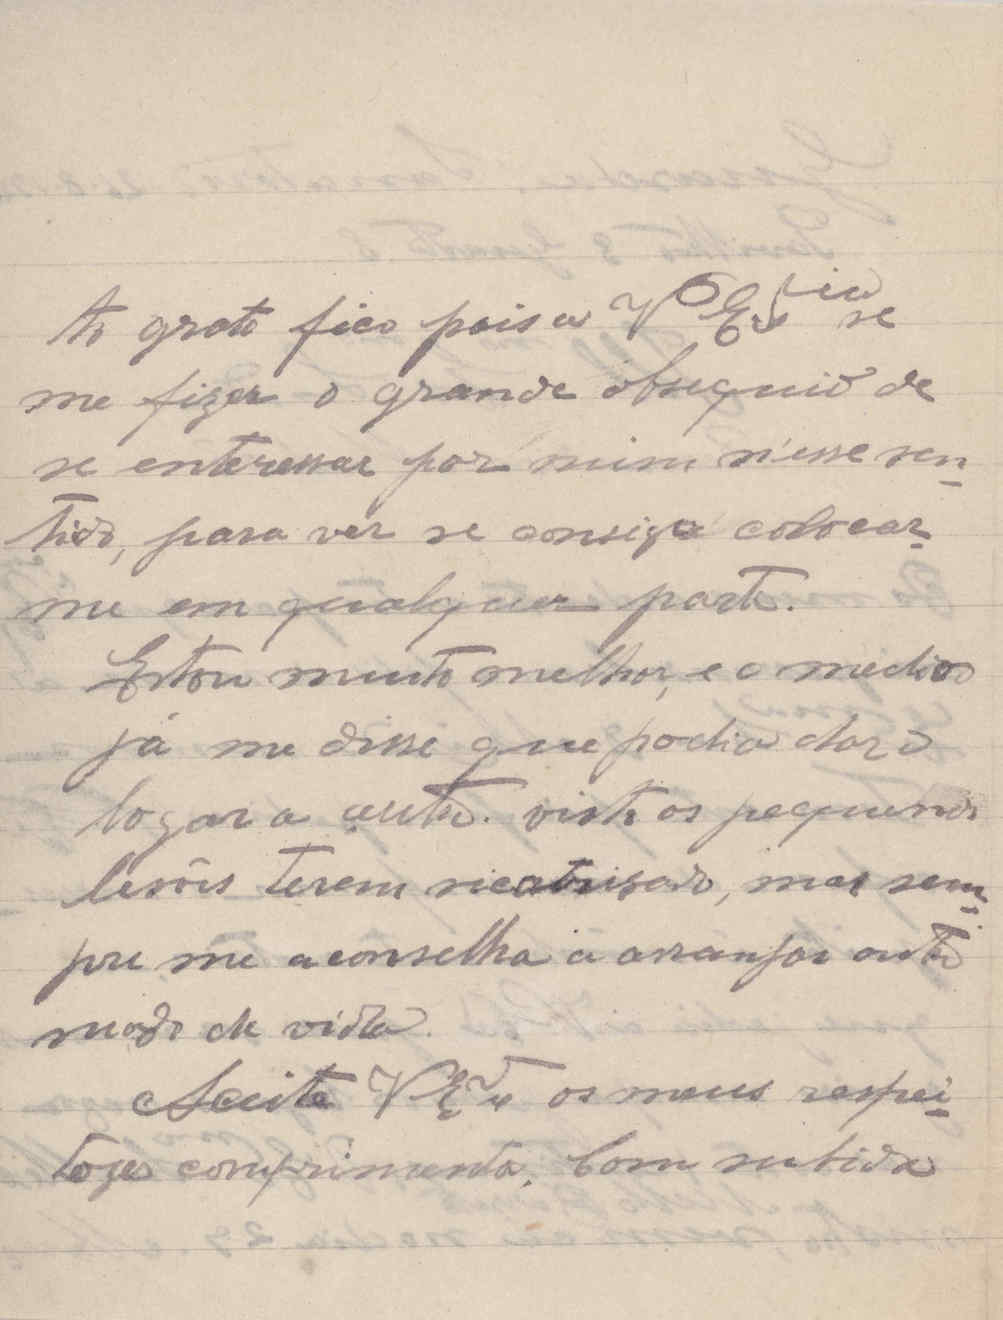 to grato fico pois a V Ex.cia se
me fizer o grande obsequio de
se enteressar por mim n'esse sen-
tido, para ver se consigo colocar-
me em qualquer parte.
Estou muito melhor, e o medico
já me disse que podia dar o
logar a outro. visto os pequenas
lesõis terem sicatrisado, mas sem-
pre me aconselha a arranjar outro
modo de vida.
Aceite V Ex.ª os meus respei-
tozos comprimentos. Com subida